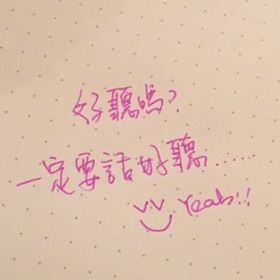 好聽嗎?
一定要話好聽......
Yeah!!